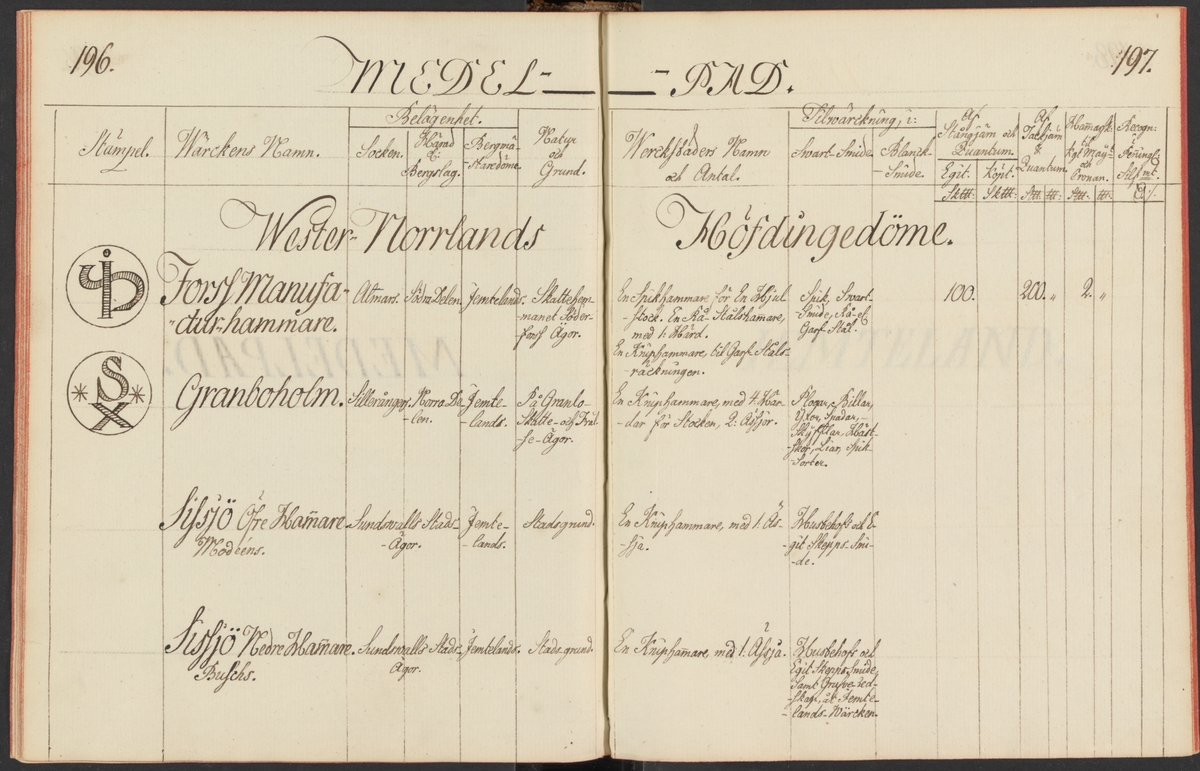 196.
MEDEL-
-PAD.
197.
Stümpel.
Wärckens Namn.
Belägenhet.
Socken.
Härad
Bergslag.
Bergmä-
staredöme.
Natur
och
Grund.
Werckstäders Namn
och Antal.
Tilwärckning, i:
Swart-Smide.
Blanck-
Smide.
Stångjärn och
Quantum.
Egit.
Köpt.
Skttt:
Skttt:
Tackjärn
Quantum.
Stt. tt:
Hamarsk:
Kgl. May:
och
Cronan.
Stt. tt:
Recogn:
Penningr
Silf. mt.
Wester-Norrlands
Höfdingedöme.
Forss Manufa-
ctur-hammare.
Attmars.
Södra Delen.
Jemtelands.
Skattehem-
manet Söder-
forss Ägor.
En Spikhammare för En Hjul-
stock. En Rå-Stålshamare,
med 1. Härd.
En Knipphammare til Garf-Ståls-
räckningen.
Spik, Swart-
Smide, Rå- et
Garf-Stål.
100.
200. „
2. „
S
X
Granboholm.
Sillerångers.
Norra De-
len.
Jemte-
lands.
På Granlo-
Skatte- och Fräl-
se-Ägor.
En Knipphammare, med 4. Här-
dar för Stocken, 2: Ässjor.
Plogar, Billar,
Yxor, Spadar,
Skyfflar, Häst-
skor, Liar, Spik-
Sorter.
Sissjö Öfre Hamare
Modééns.
Sundswalls Stads-
Ägor.
Jemte-
lands.
Stadsgrund.
En Knipphammare, med 1. Äs-
sja.
Husbehofs och E-
git Skepps-Smi-
de.
Sissjö Nedre Hamare.
Buschs.
Sundswalls Stads
Ägor.
Jemtelands.
Stadsgrund.
En Kniphamare, med 1: Ässja.
Husbehofs och
Egit Skepps-Smide,
Samt Grufve-red-
skap, åt Jemte-
lands-Wärcken.